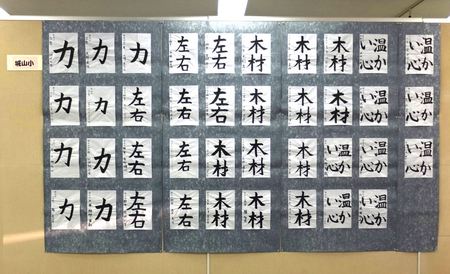 城山小
力 力 力 左右 左右 木材 木材 木材 温かい心 温かい心
力 力 左右 左右 左右 木材 木材 木材 温かい心 温かい心
力 力 左右 左右 木材 木材 木材 温かい心 温かい心 温かい心
力 力 左右 左右 木材 木材 木材 温かい心 温かい心